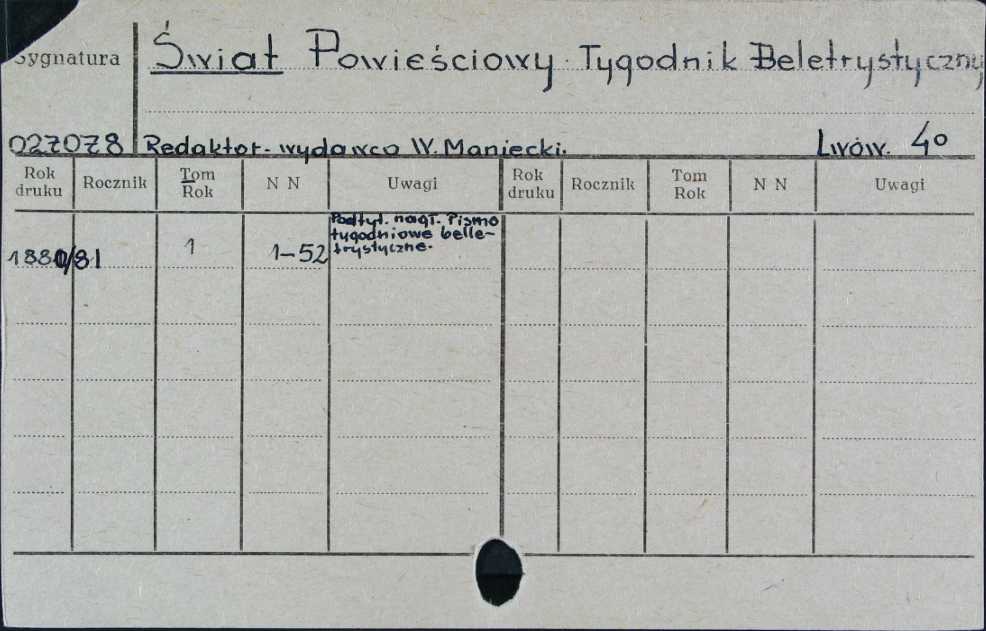 Sygnatura Świat Powieściowy. Tygodnik Beletrystyczny
027078 Redaktor-wydawca W. Maniecki. Lwów. 4°
Rok druku Rocznik Tom Rok N N Uwagi Rok druku Rocznik Tom Rok N N Uwagi
1880/81 1 1-52 Podtyt. nagł. Pismo
tygodniowe belle-
trystyczne.